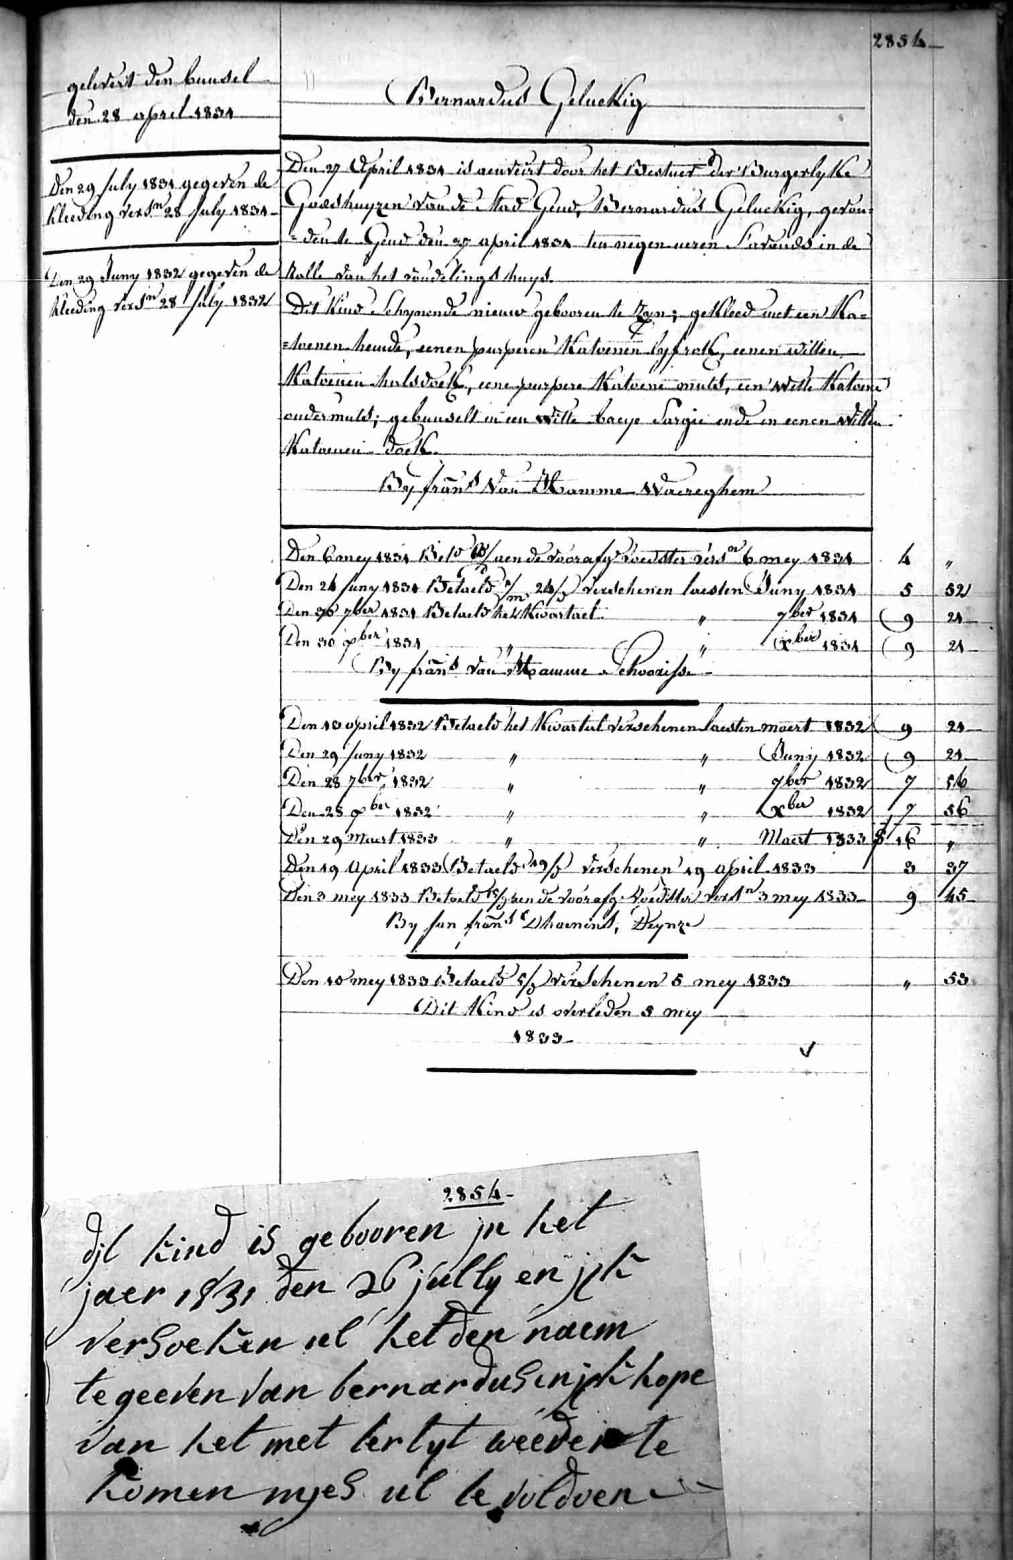 2854
gelevert den bunsel
den 28 april 1831
Bernardus Geluckig
Den 29 July 1831 gegeven de
kleeding vers.n 28 July 1831
Den 29 Juny 1832 gegeven de
kleeding vers.n 28 July 1832
Den 27 April 1831 is aenveirt door het Bestuer der Burgerlyke
Godshuyzen van de Stad Gend, Bernardus Geluckig, gevon=
=den te Gend den 27 april 1831 ten negen ueren s'avonds in de
Rolle van het vondelingshuys.
Dit Kind schynende nieuw gebooren te zyn; gekleed met een Ka=
=toenen hemde, eenen purperen Katoenen lyfrok, eenen witten
Katoenen halsdoek, eene purpere Katoene muts, een witte Katoene
ondermuts; gebunselt in een witte baeye Sargie ende in eenen witten
Katoenen doek.
By frans Van Hamme Waereghem
Den 6 mey 1831 Bet.d aen de voorafg. voedster vers.n 6 mey 1831 4 "
Den 24 Juny 1831 Betaeld verschenen laesten Juny 1831 5 52
Den 30 7ber 1831 Betaeld het Kwartael " 7ber 1831 9 21
Den 30 xber 1831 " " xber 1831 9 21
By frans van Hamme Schoorisse
Den 10 april 1832 Betaeld het Kwartael verschenen laesten maert 1832 9 21
Den 29 Juny 1832 " " Juny 1832 9 21
Den 28 7ber 1832 " " 7ber 1832 7 56
Den 28 xber 1832 " " xber 1832 7 56
Den 29 Maert 1833 " " Maert 1833 16 "
Den 19 April 1833 Betaeld 19/ verschenen 19 april 1833 3 37
Den 3 mey 1833 Betaeld aen de voorafg. Voedster vers.n 3 mey 1833 9 45
By Jan frans Dhaenens, Deynze
Den 10 mey 1833 Betaeld 5/ verschenen 5 mey 1833 " 53
Dit Kind is overleden 5 mey
1833
2854
dit kind is gebooren jn het
jaer 1831 den 26 jully en jk
versoeken ul het den naem
te geeven van bernardus en jk hope
van het met ter tyt weeder te
komen ul te voldoen